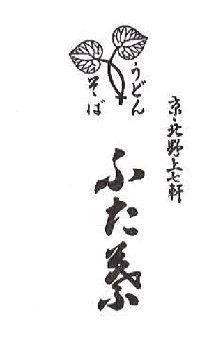 京・北野上七軒
うどん
そば
ふた葉